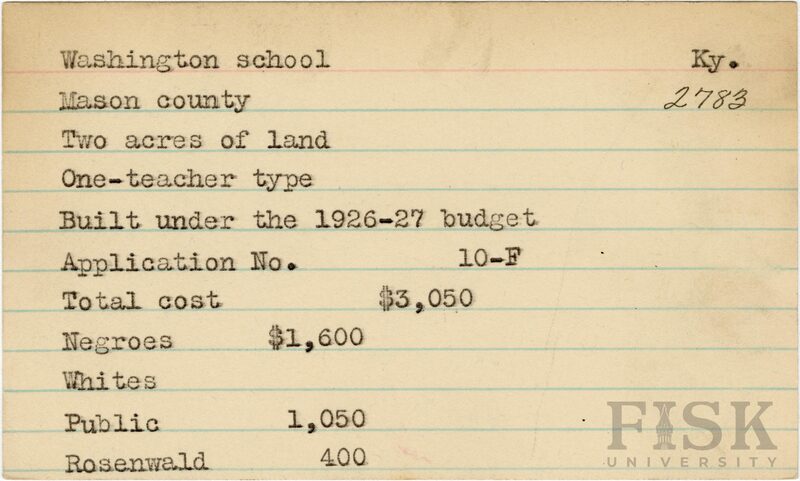 Washington school Ky.
Mason county 2783
Two acres of land
One-teacher type
Built under the 1926-27 budget
Application No. 10-F
Total cost $3,050
Negroes $1,600
Whites
Public 1,050
Rosenwald 400
FISK
UNIVERSITY